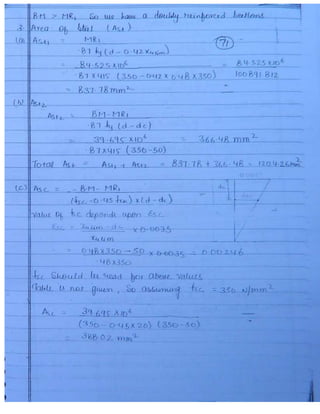 BM > MR₁ So we have a doubly reinforced
3. Area of steel (Ast)
(71)
(a) Ast₁ = MR₁
.87 fy (d - 0.42 Xulim)
= 84.525 X10⁶ = 84.525 X10⁶
.87 X 415 (350 - 0.42 X 0.48 X 350) 100891.812
= 837.78 mm²
(b) Ast₂
Ast₂ = BM - MR₁
.87 fy (d - dc)
= 39.695 X10⁶ = 366.48 mm²
.87 X 415 (350 - 50)
Total Ast = Ast₁ + Ast₂ = 837.78 + 366.48 = 1204.26 mm²
(c) Asc = BM - MR₁
(fsc - 0.45 fck) x (d - dc)
Value of fsc depends upon Esc
Esc = Xulim - dc x 0.0035
Xulim
= 0.48 X 350 - 50 X 0.0035 = 0.00246
.48 X 350
fsc should be read for above values
Table is not given, So assuming fsc = 350 N/mm²
Asc = 39.695 X10⁶
(350 - 0.45 X 20) (350 - 50)
= 388.02 mm²